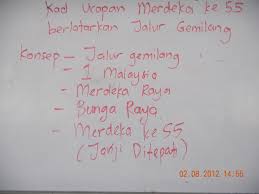 Kad Ucapan Merdeka ke 55
berlatarkan Jalur Gemilang
Konsep - Jalur gemilang
- 1 Malaysia
- Merdeka Raya
- Bunga Raya
- Merdeka ke 55
(Janji Ditepati)
02.08.2012 14:55